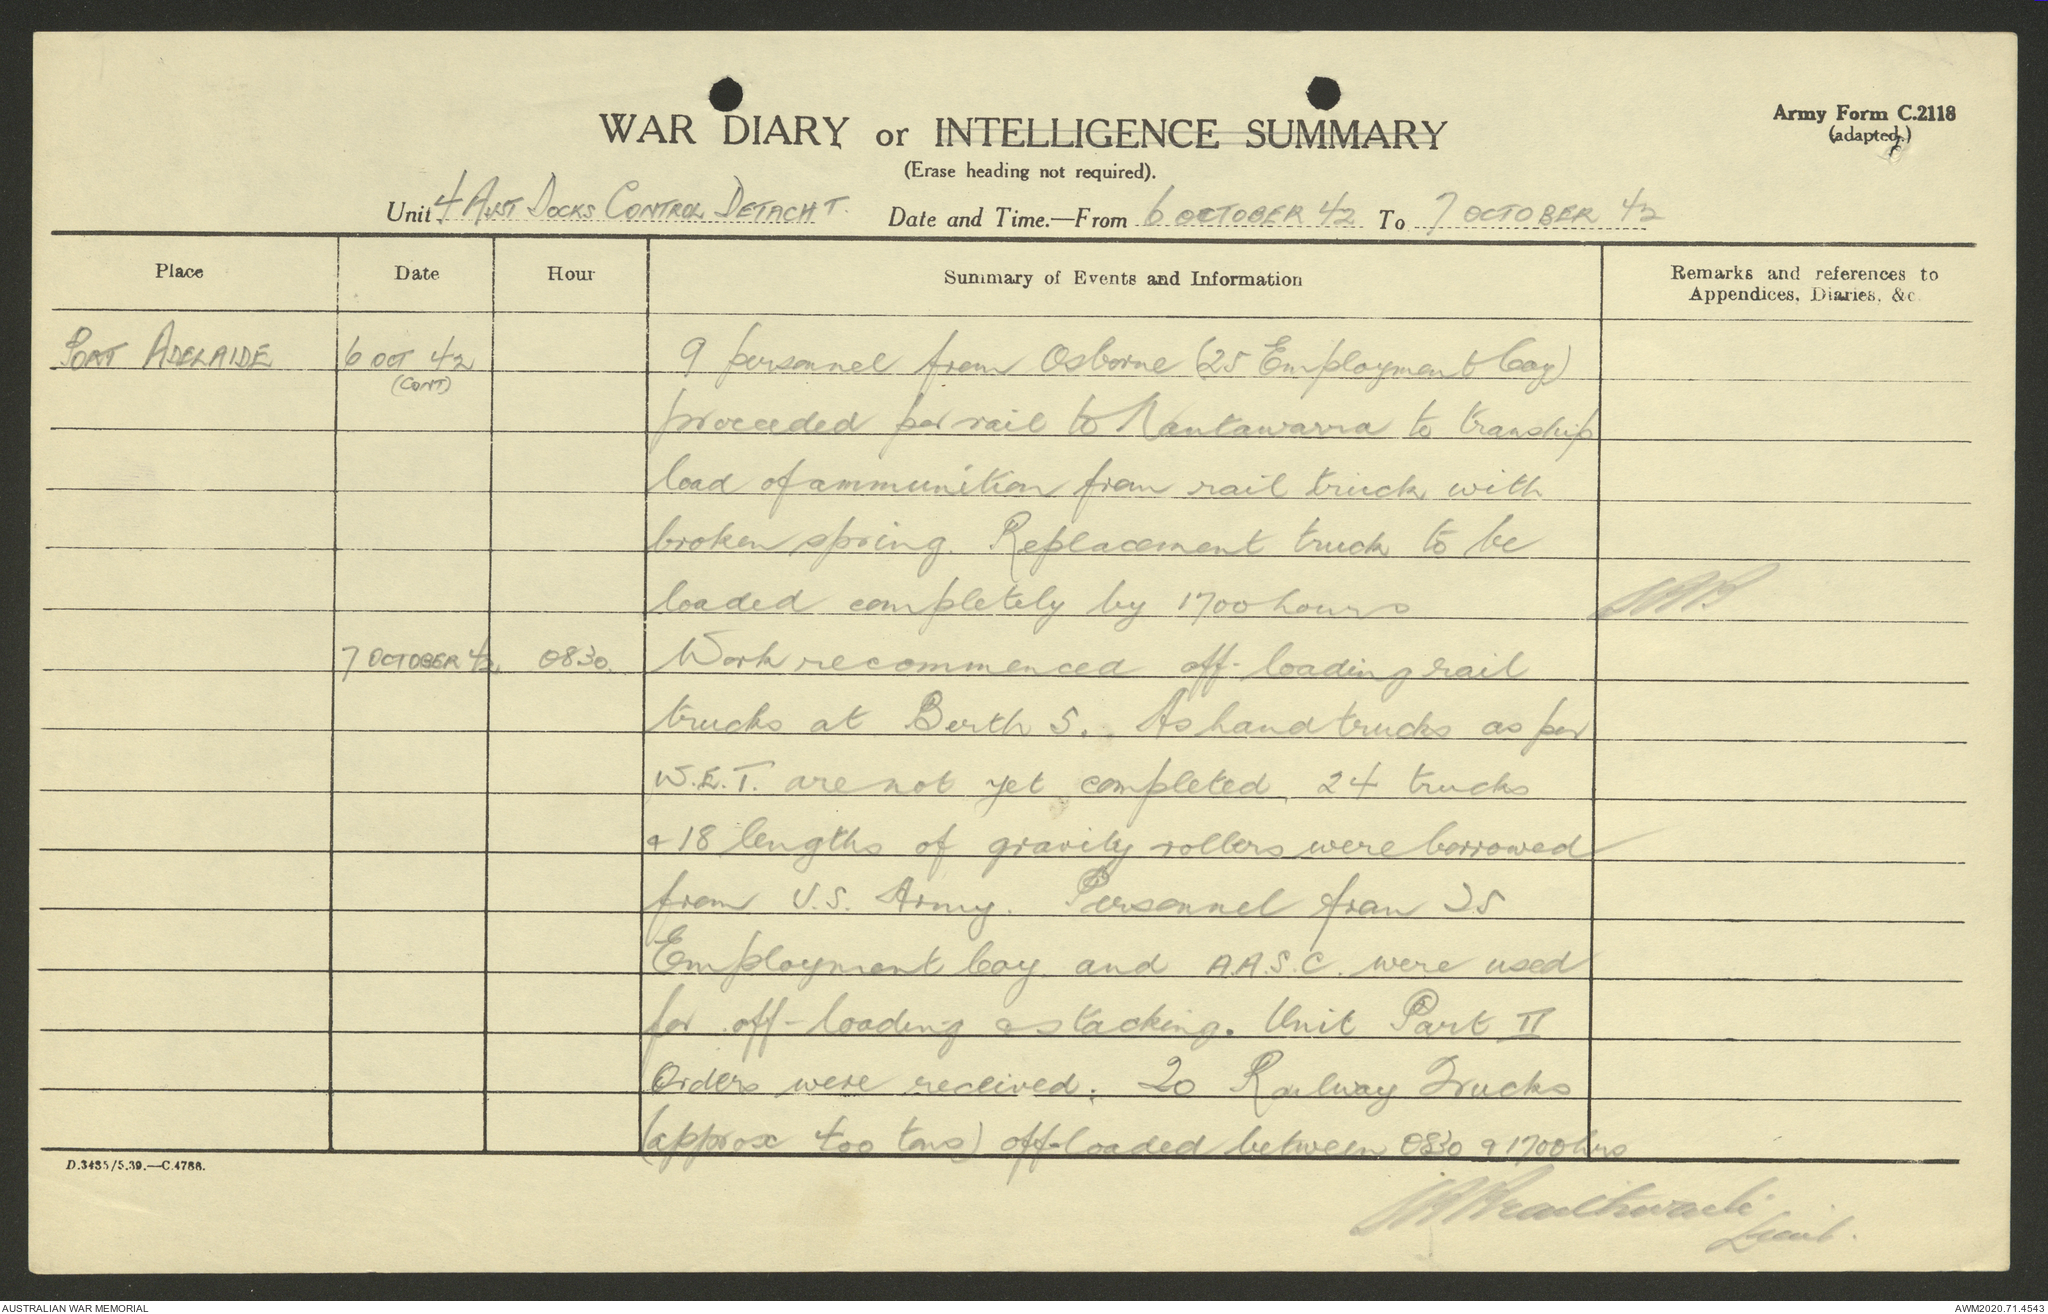 Army Form C.2118
(adapted.)
WAR DIARY or INTELLIGENCE SUMMARY
(Erase heading not required).
Unit 4 Aust Docks Control Detacht. Date and Time.—From 6 October 42 To 7 October 42
Place Date Hour Summary of Events and Information Remarks and references to
Appendices, Diaries, &c.
Port Adelaide 6 Oct 42 9 personnel from Osborne (25 Employment Coy)
(Cont)
proceeded per rail to Nantawarra to tranship
load of ammunition from rail truck with
broken spring. Replacement truck to be
loaded completely by 1700 hours
7 October 42 0830. Work recommenced off-loading rail
trucks at Berth 5. As hand trucks as per
W.E.T. are not yet completed, 24 trucks
& 18 lengths of gravity rollers were borrowed
from U.S. Army. Personnel from 25
Employment Coy and A.A.S.C. were used
for off-loading & stacking. Unit Part II
Orders were received. 20 Railway Trucks
(approx 400 tons) off-loaded between 0830 & 1700 hrs
D.3435/5.39.—C.4786.
Braithwaite
Lieut.
AUSTRALIAN WAR MEMORIAL AWM2020.71.4543